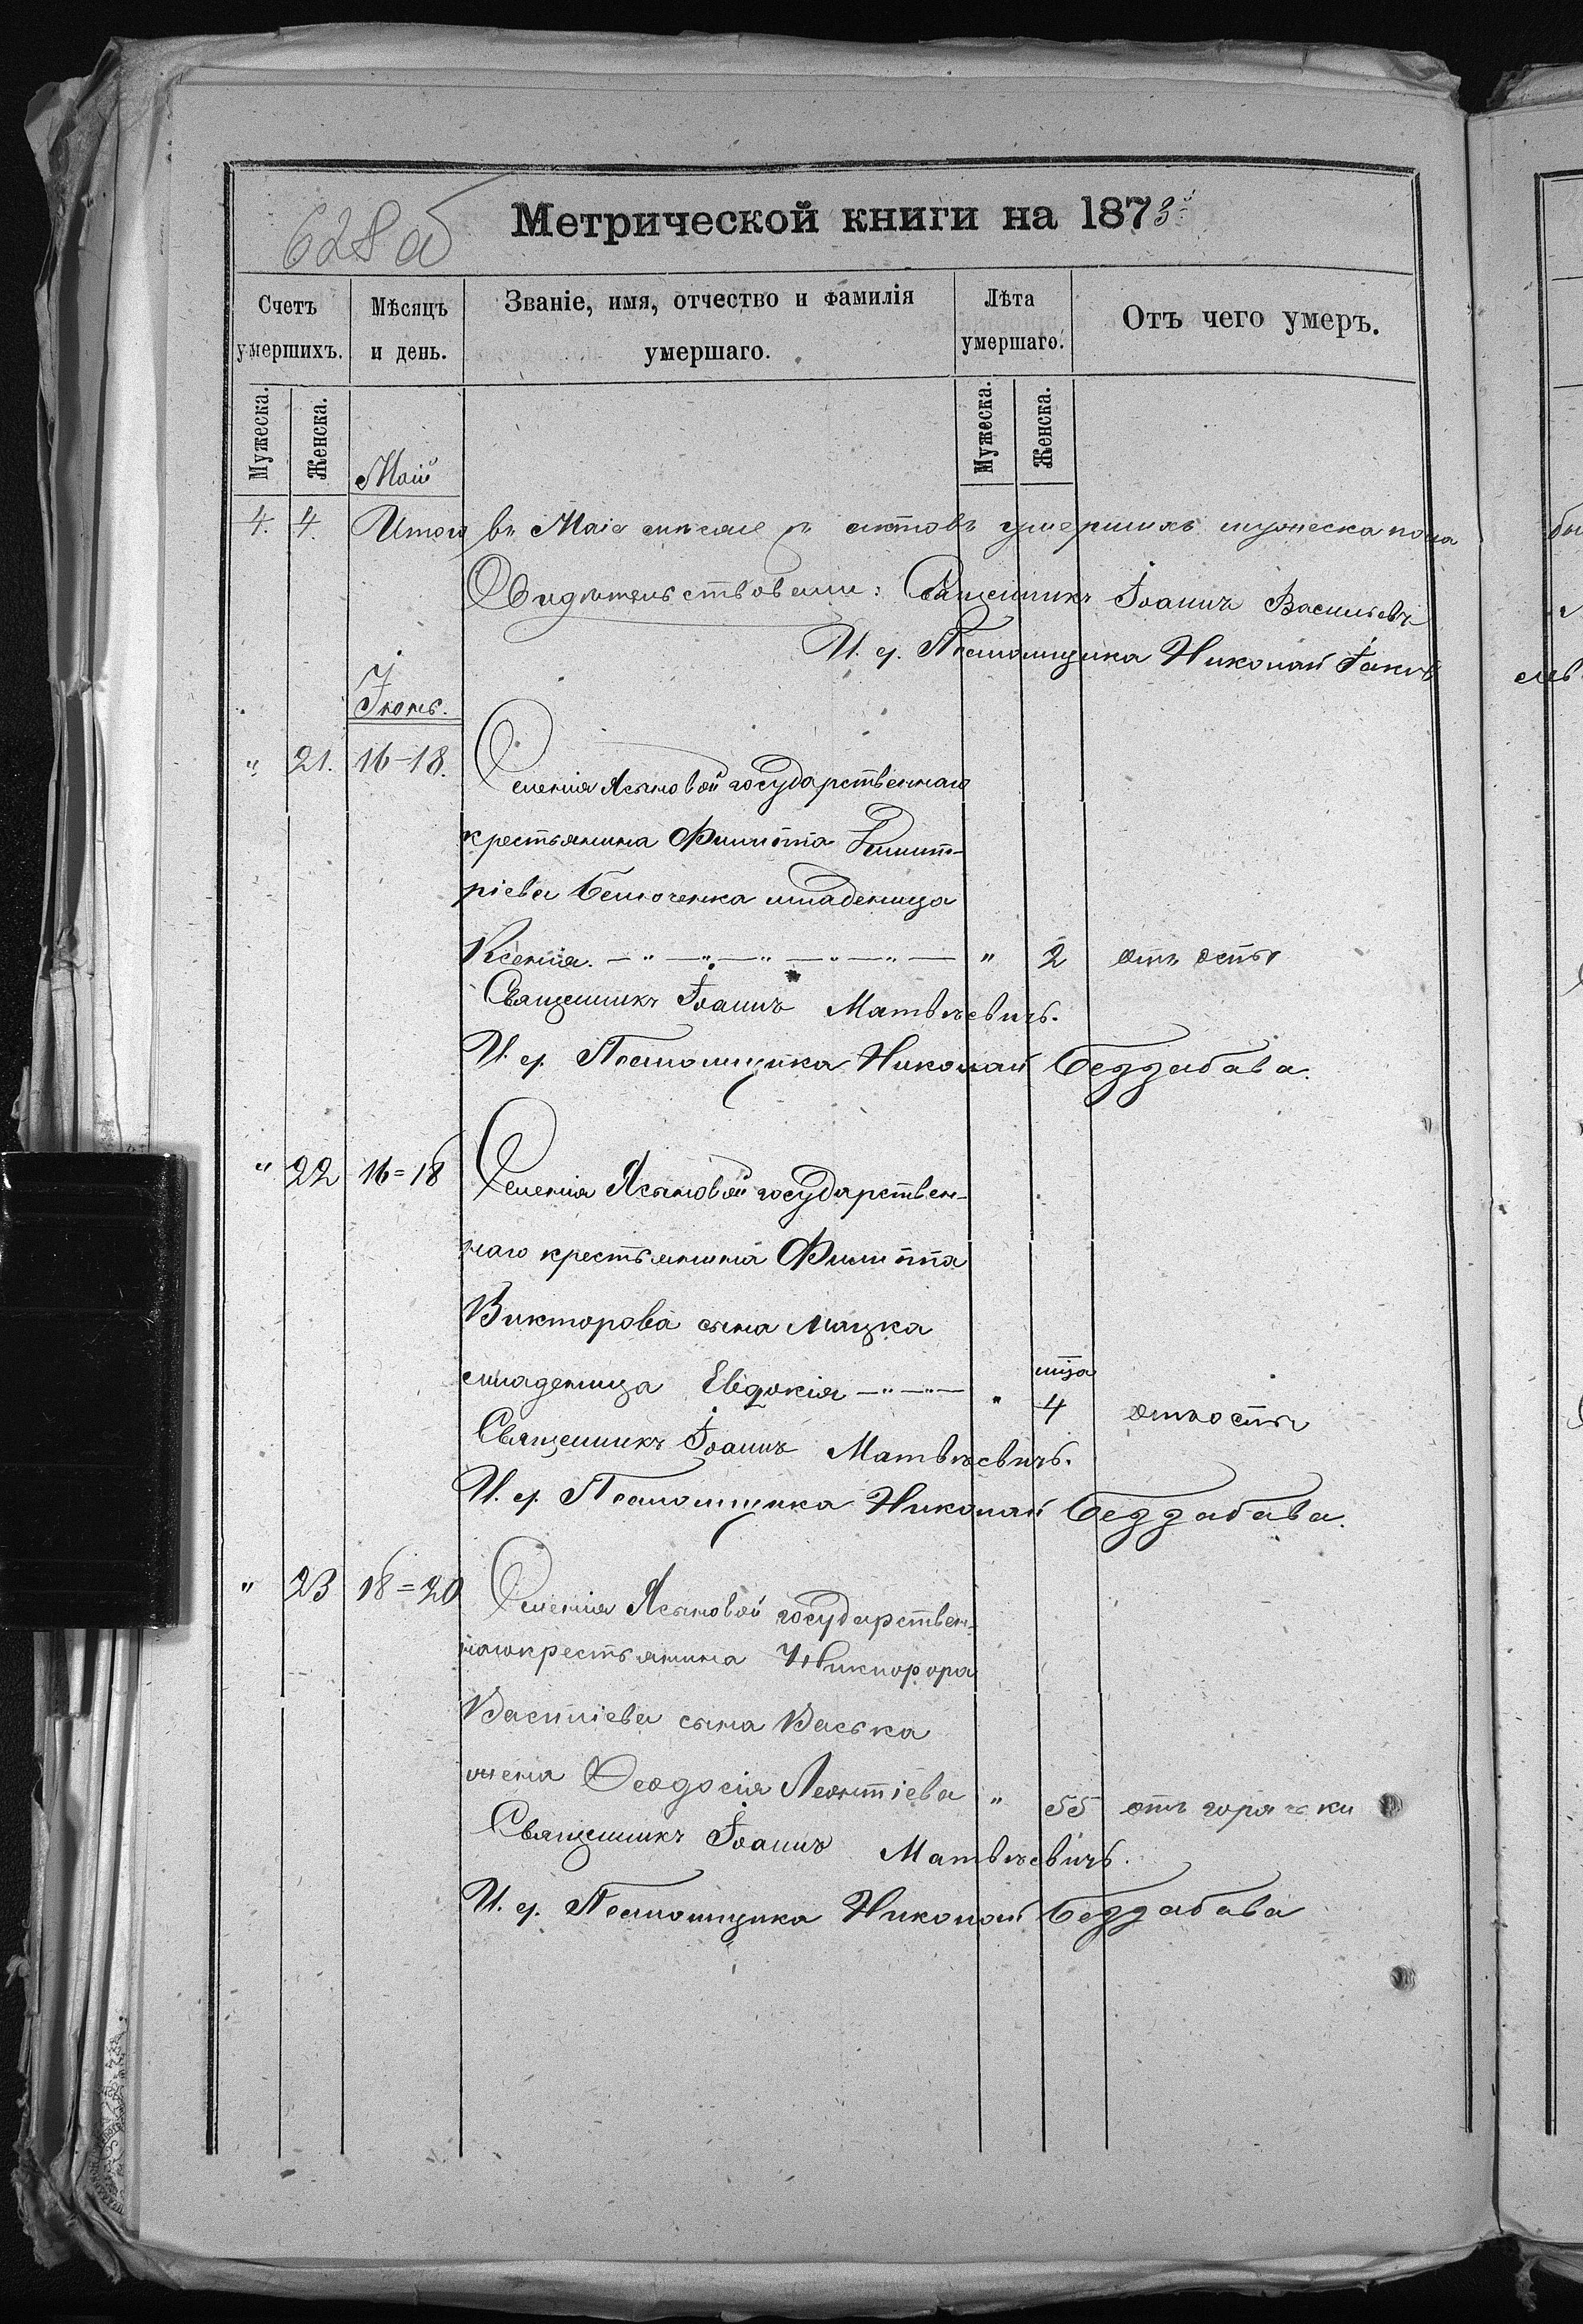 628 об
Метрической книги на 1873й
Счетъ умершихъ.
Мѣсяцъ и день.
Званіе, имя, отчество и фамилія умершаго.
Лѣта умершаго.
Отъ чего умеръ.
Мужеска.
Женска.
Май
Мужеска.
Женска.
4. 4. Итого въ Маіе умершихъ мужеска пола
Свидѣтельствовали: Священникъ Іоаннъ
И. д. Псаломщика Николай
Іюнь.
" 21. 16-18. Селенія Ясыновой государственнаго
крестьянина Филиппа Димит-
ріева младеница
Ксенія. " 2 отъ оспы
Священникъ Іоаннъ Матвѣевичъ.
И. д. Псаломщика Николай Беззабава.
" 22 16=18 Селенія Ясыновой государствен-
наго крестьянина Филиппа
Викторова сына Мацка
младеница Евдокія " мца 4 отъ оспы
Священникъ Іоаннъ Матвѣевичъ.
И. д. Псаломщика Николай Беззабава.
" 23 18=20 Селенія Ясыновой государствен-
наго крестьянина Никифора
Василіева сына Васька
жена Феодосія Леонтіева " 55 отъ горячки
Священникъ Іоаннъ Матвѣевичъ.
И. д. Псаломщика Николай Беззабава